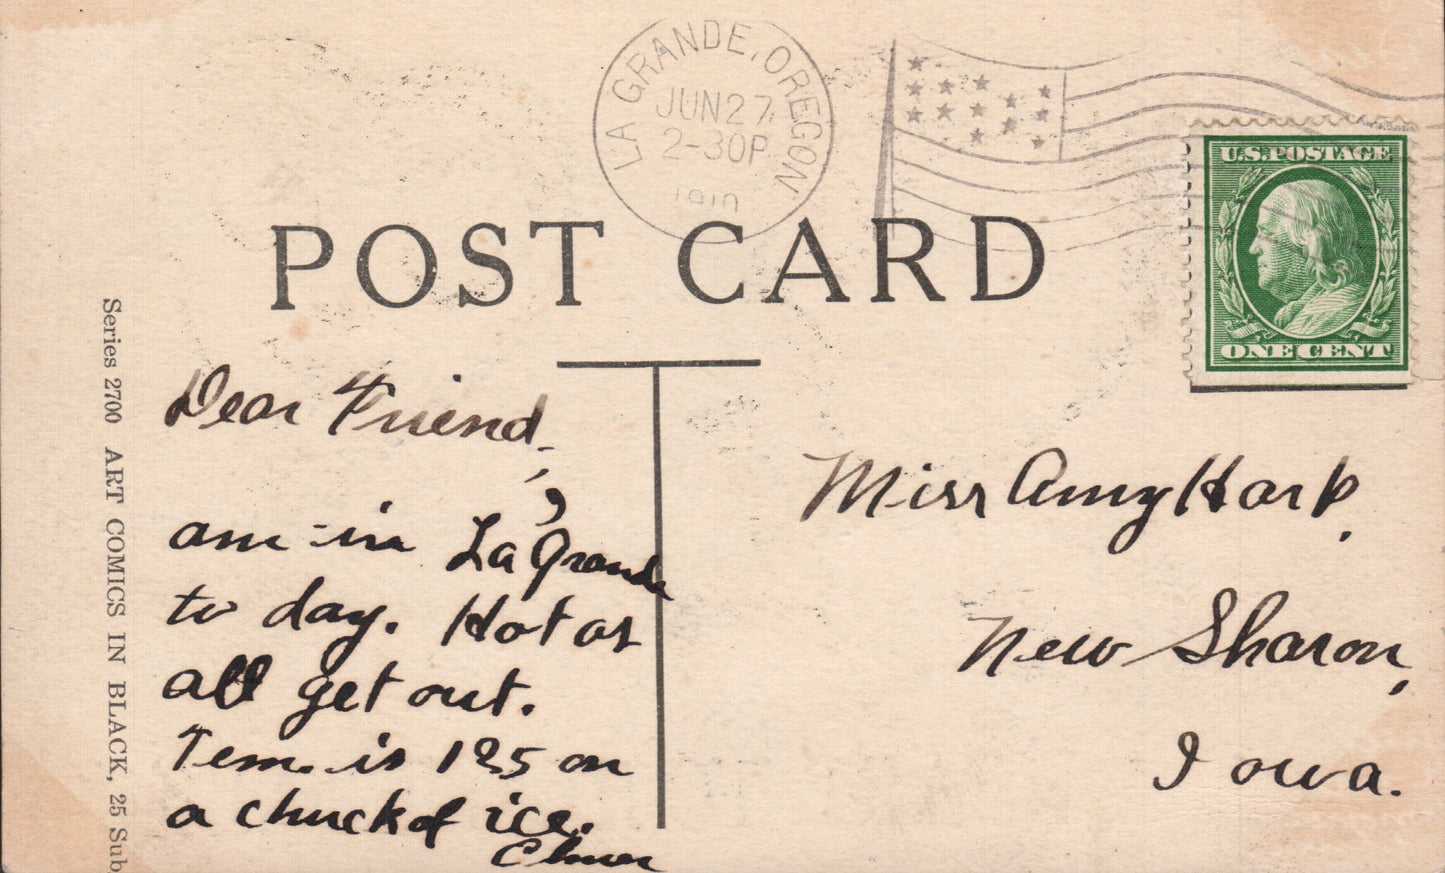 LA GRANDE, OREGON
JUN 27
2-30P
1910
U.S. POSTAGE
ONE CENT
POST CARD
Series 2700 ART COMICS IN BLACK, 25 Sub
Dear Friend,
am in La Grande
to day. Hot as
all get out.
Tem. is 125 on
a chuck of ice.
Elmer
Miss Amy Harp.
New Sharon,
Iowa.